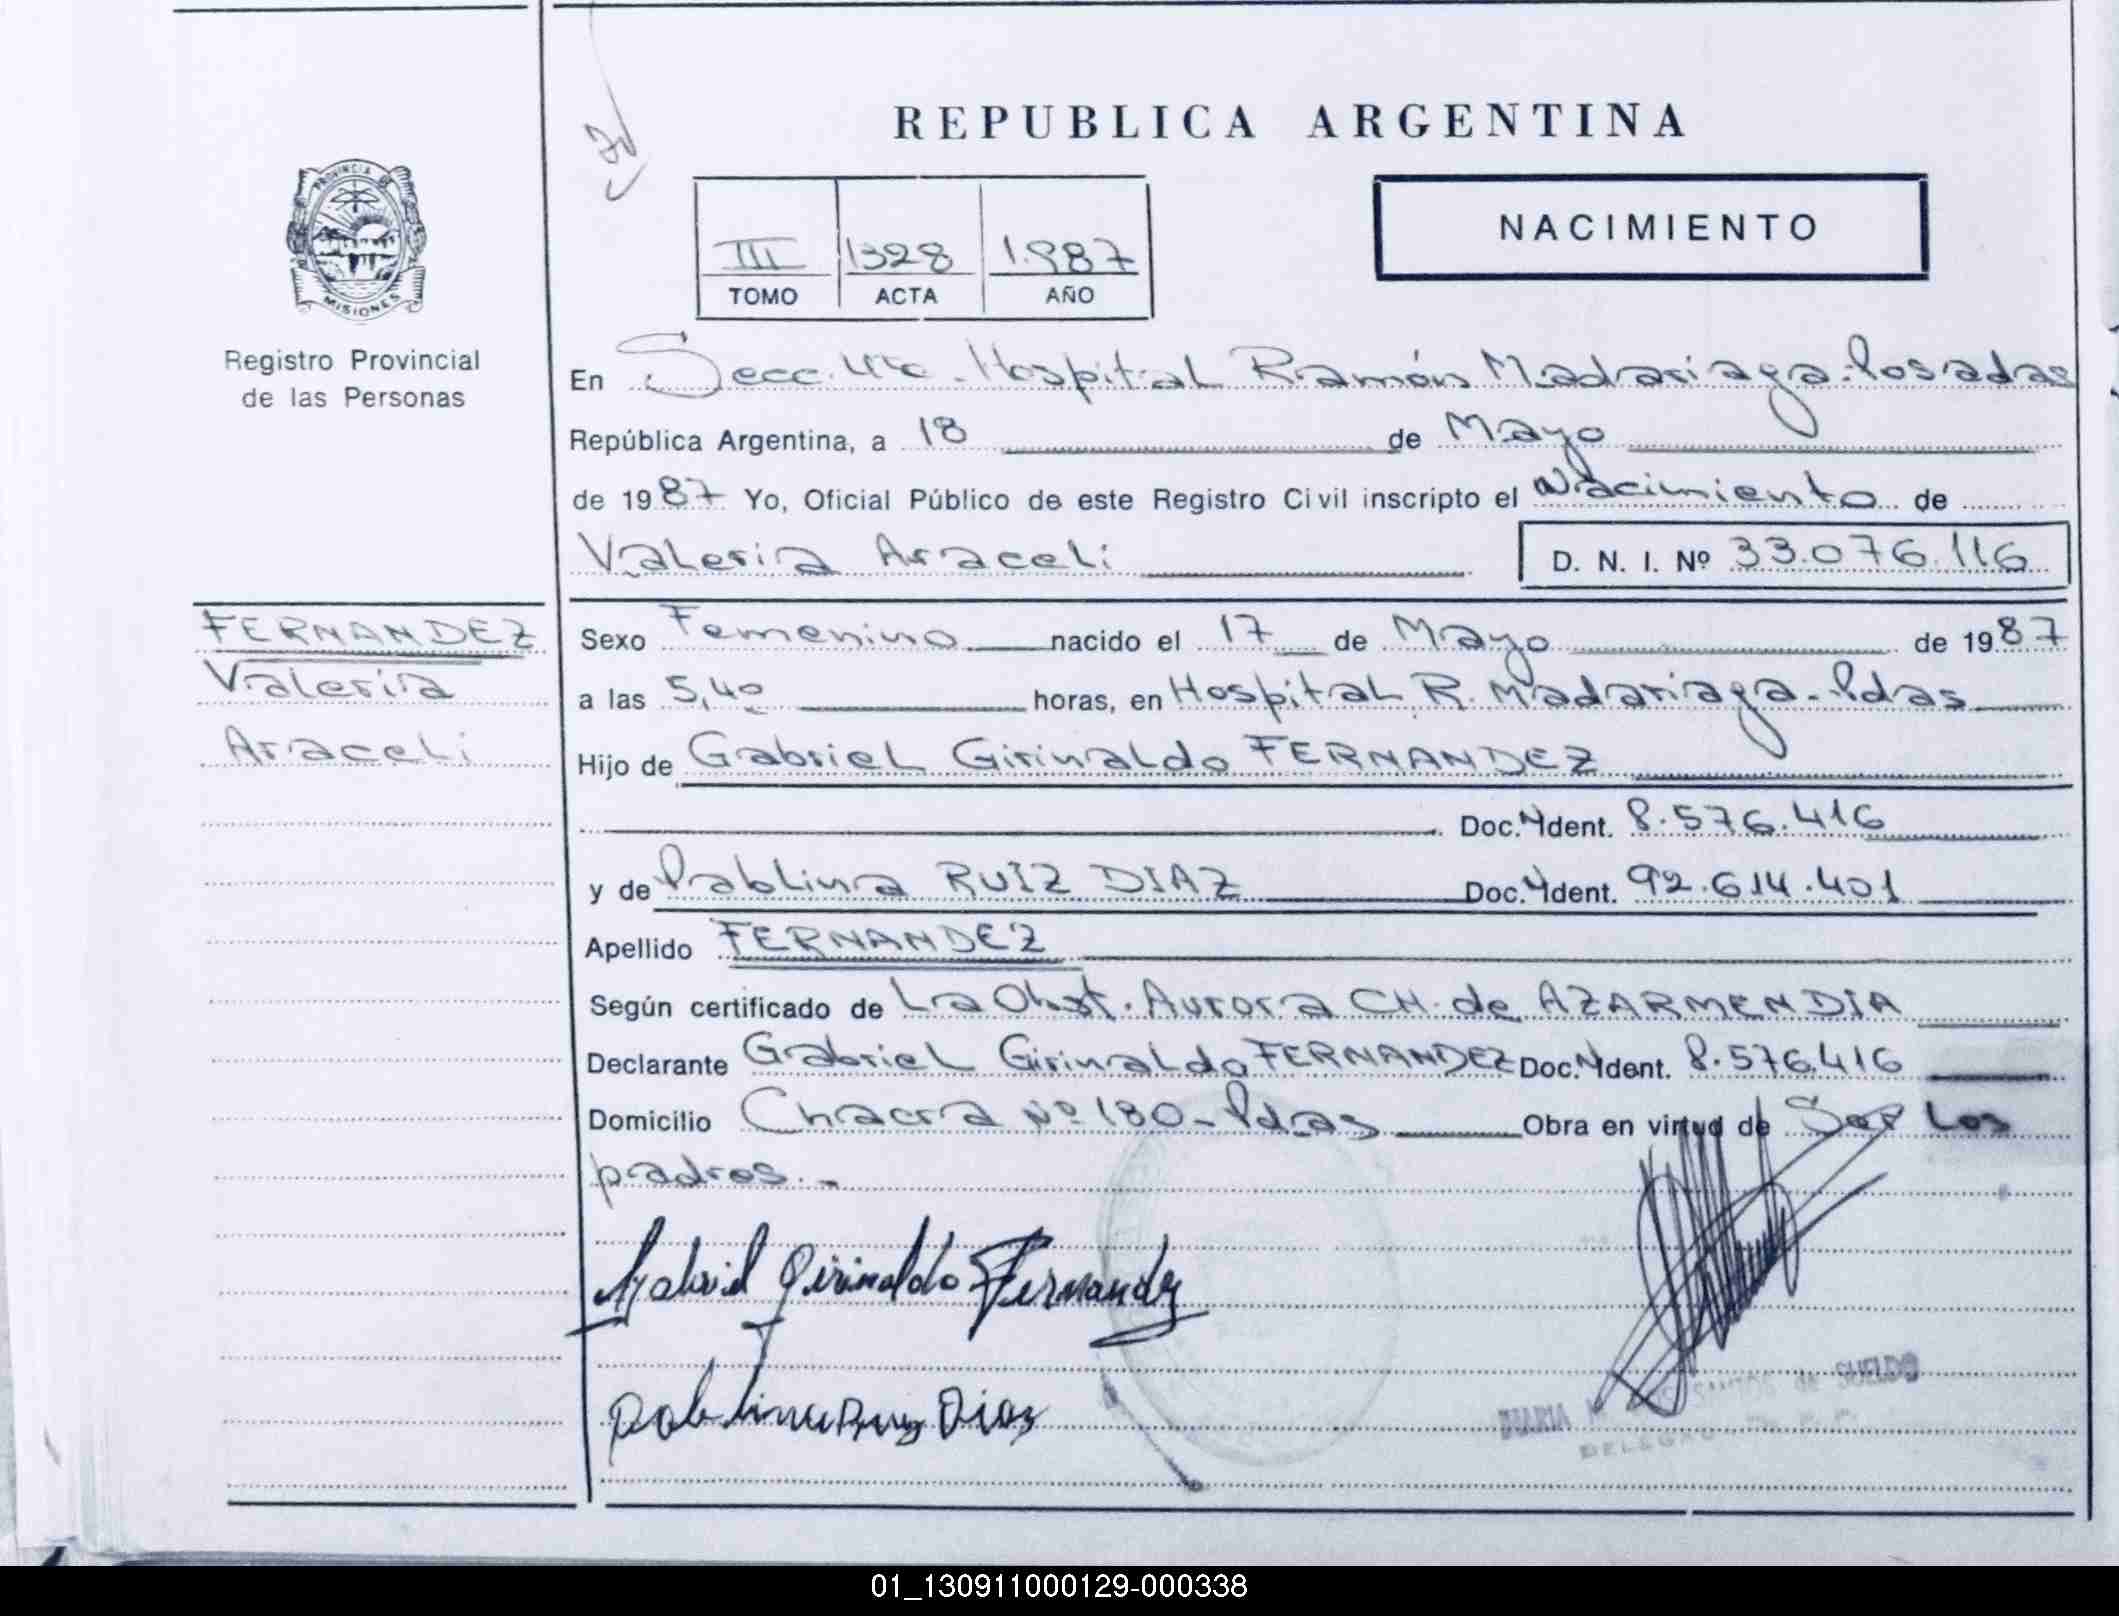 REPUBLICA ARGENTINA
NACIMIENTO
III 1328 1.987
TOMO ACTA AÑO
PROVINCIA DE
MISIONES
Registro Provincial
de las Personas
FERNANDEZ
Valeria
Araceli
En Secc. 4ta. Hospital Ramón Madariaga-Posadas
República Argentina, a 18 de Mayo
de 1987 Yo, Oficial Público de este Registro Civil inscripto el Nacimiento de
Valeria Araceli D. N. I. Nº 33.076.116
Sexo Femenino nacido el 17 de Mayo de 1987
a las 5,40 horas, en Hospital R. Madariaga-Pdas
Hijo de Gabriel Girinaldo FERNANDEZ
Doc. Ident. 8.576.416
y de Pablina RUIZ DIAZ Doc. Ident. 92.614.401
Apellido FERNANDEZ
Según certificado de La Obst. Aurora CH. de AZARMENDIA
Declarante Gabriel Girinaldo FERNANDEZ Doc. Ident. 8.576.416
Domicilio Chacra Nº 180-Pdas Obra en virtud de Ser Los
padres.-
Gabriel Girinaldo Fernandez
Pablina Ruiz Diaz
SANTOS de SUELDO
01_130911000129-000338